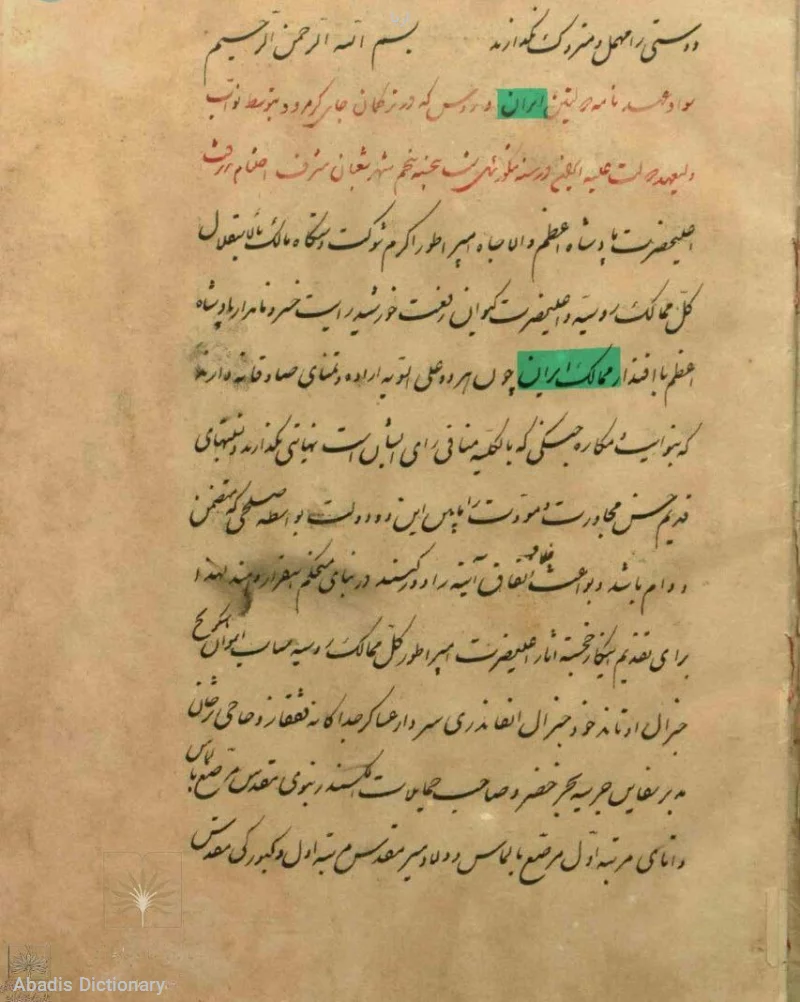 دوستی را مهمل و متروک نگذارند بسم الله الرحمن الرحیم
سواد عهد نامه دولتین ایران و روس که در ترکمان چای گرم رود بتوسط نواب
ولیعهد دولت علیه شهر شعبان شرف
اعلیحضرت پادشاه اعظم والا جاه امپراطور اکرم شوکت دستگاه مالک بالاستقلال
کل ممالک روسیه و اعلیحضرت کیوان رفعت خورشید رایت خسرو نامدار پادشاه
اعظم با اقتدار ممالک ایران چون هر دو علی السویه اراده و تمنای صادقانه دارند
که بنوایب و مکاره جنگی که بالکلیه منافی رای ایشان است نهایتی بگذارند و سنتهای
قدیم حسن مجاورت و مودت را مابین این دو دولت بواسطه صلحی که متضمن
دوام باشد و بواعث خلاف و نفاق آینه را دور کند در بنای مستحکم استقرار دهند لهذا
برای تقدیم اینکار خجسته اثار اعلیحضرت امپراطور کل ممالک روسیه جناب ایوان
جنرال اوتاند خود جنرال انفاندری سردار عساکر جداکانه قفقاز و
مدبر سفاین حربیه بحر خضر و صاحب حمایلات الکسندر نوی مقدس مرصع بالماس
و انای مرتبه اول مرصع بالماس و ولادمیر مقدس مرتبه اول و کیورکی مقدس
Abadis Dictionary